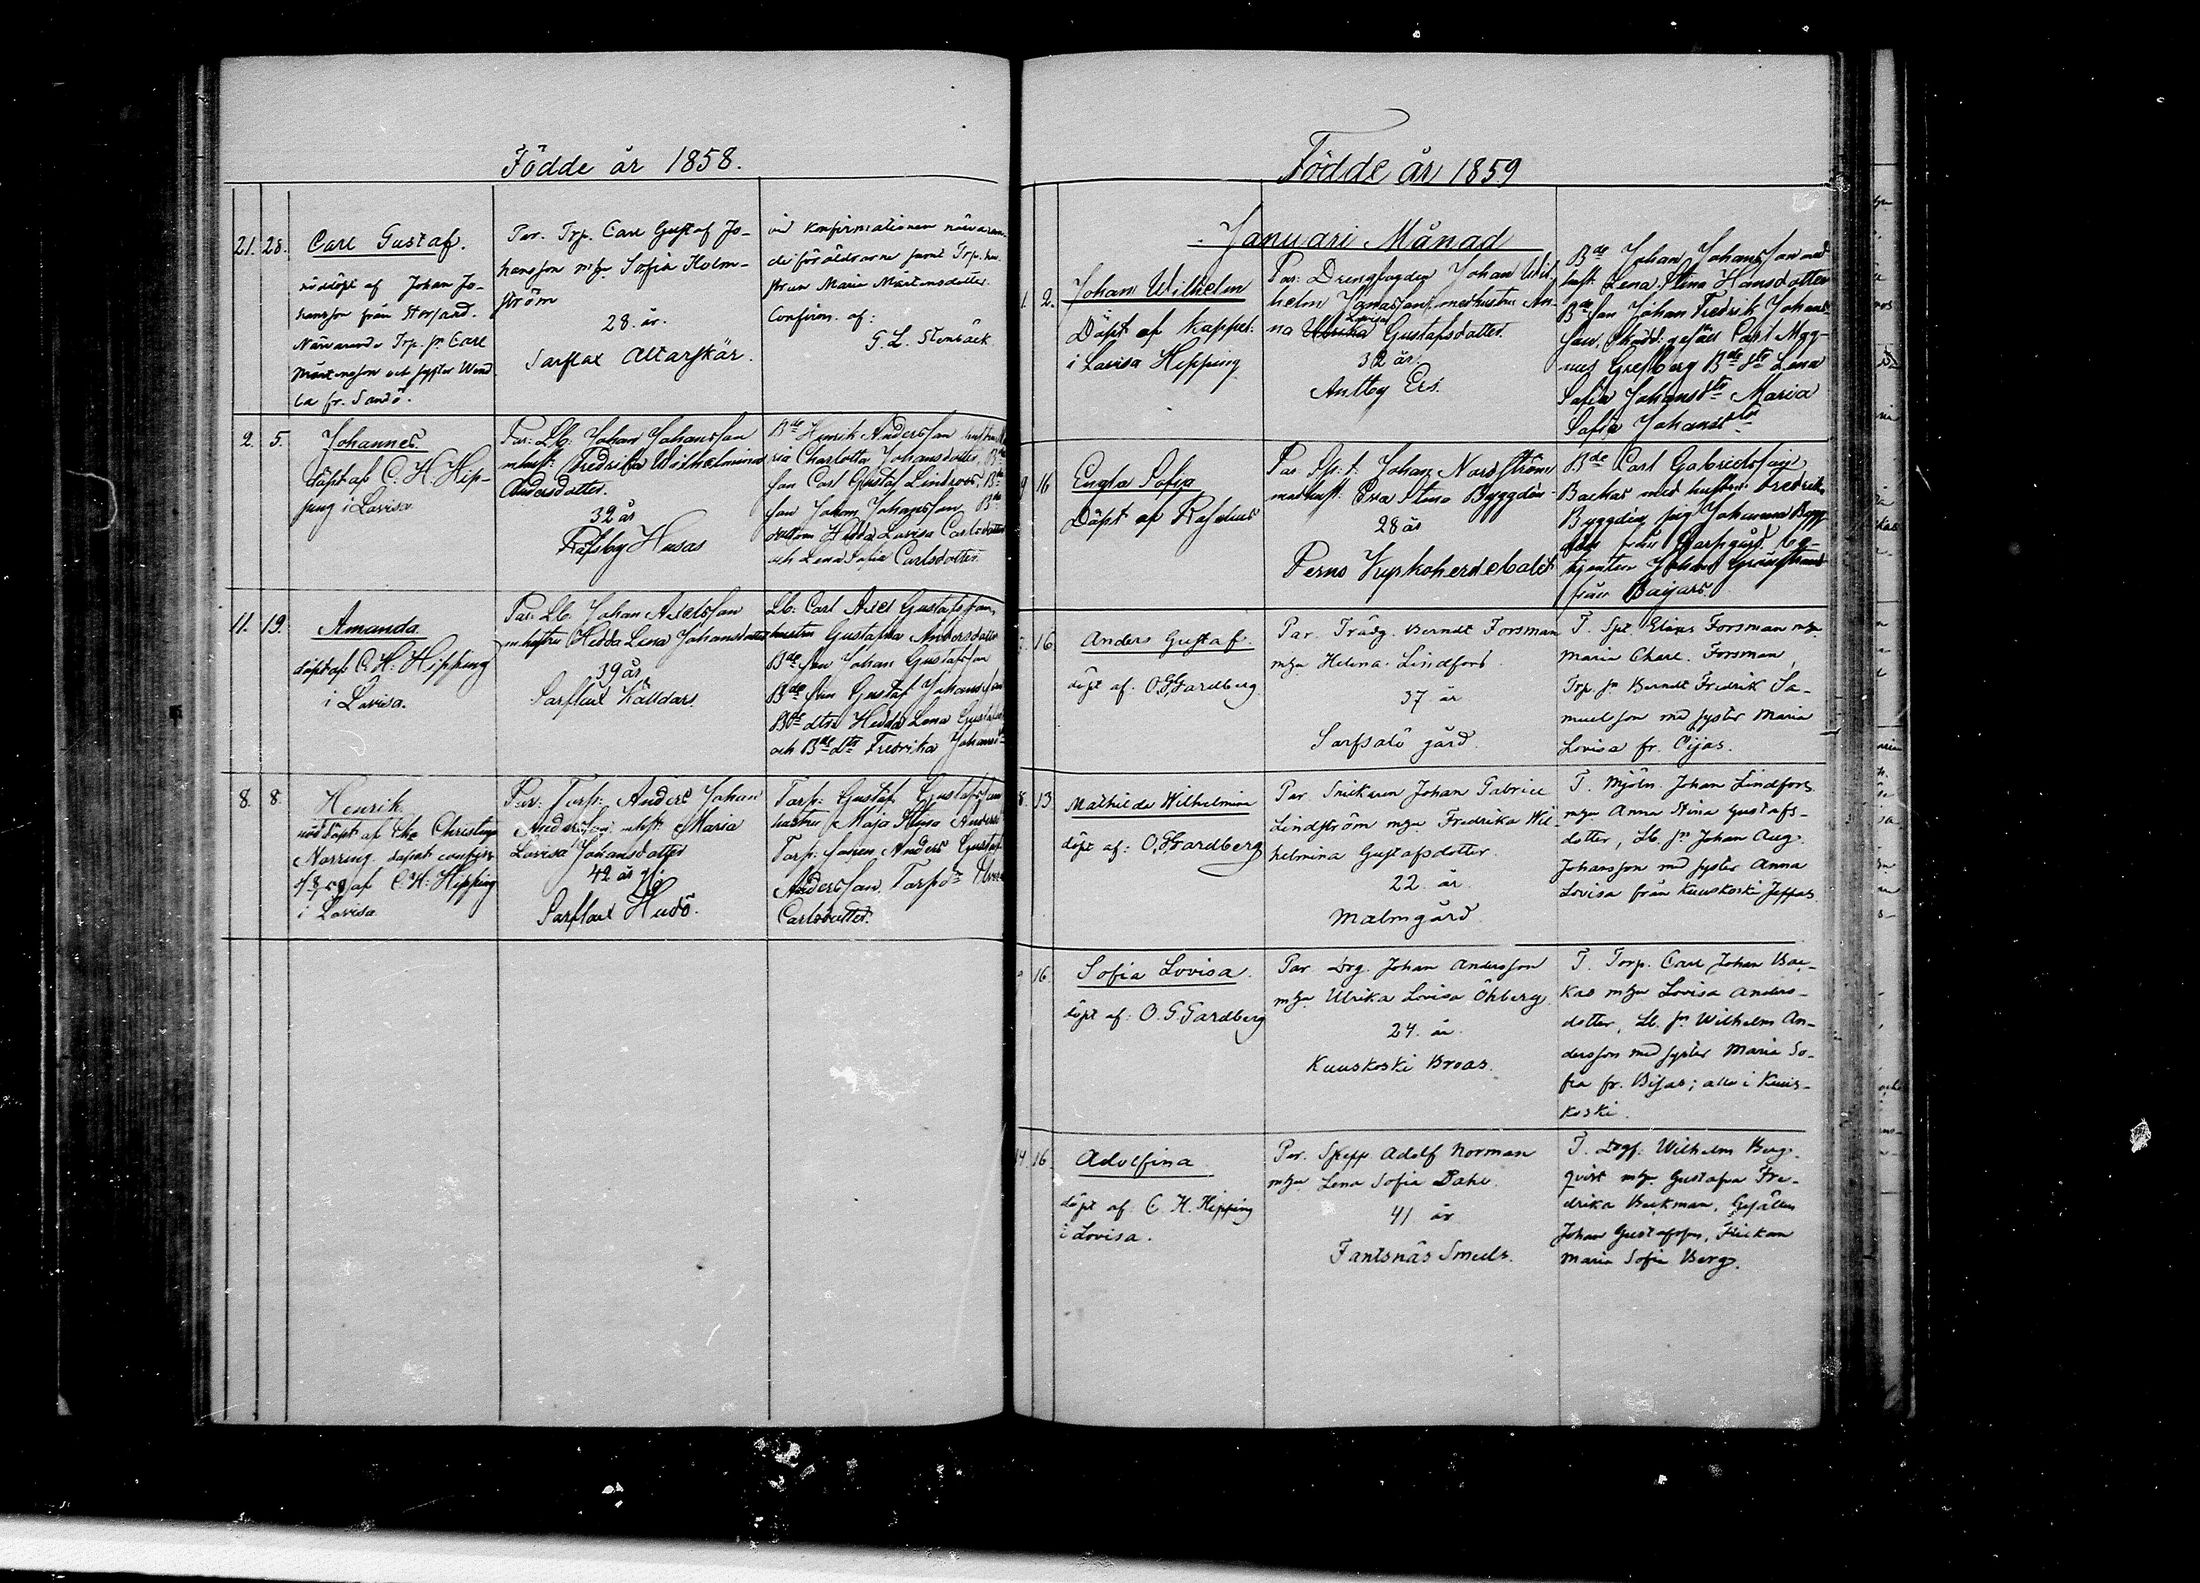 Födde år 1858.
21. 28. Carl Gustaf.
nöddöpt af Johan Jo-
hansson från Storsard.
Närvarande Trp. sn Carl
Mårtensson och syster Wend
la fr. Sandö.
Par. Trp. Carl Gustaf Jo-
hansson mhu Sofia Holm-
ström
28. år.
Sarflax Altarskär.
vid konfirmationen närvaran-
de föräldrarne samt Trp. hu-
strun Maria Mårtensdotter.
Confirm. af:
G. L. Stenbäck
2. 5. Johannes.
döpt af C. H. Hip-
ping i Lovisa
Par: Lb: Johan Johansson
mhust: Fredrika Wilhelmina
Andersdotter.
32 år
Räfsby Husas
Bde Henrik Andersson hustru Ma
ria Charlotta Johansdotter, Bde
son Carl Gustaf Lindroos, Bde
son Johan Johansson Bde
Hedda Lovisa Carlsdotter
och Lena Sofia Carlsdotter.
11. 19. Amanda
döpt af C. H. Hipping
i Lovisa.
Par: Lb. Johan Axelsson
mhustru Hedda Lena Johansdotter
39 år
Sarflax Källdars.
Lb: Carl Axel Gustafsson,
hustru Gustafva Andersdotter
Bde son Johan Gustafsson
Bde son Gustaf Johansson
Bde dtr Hedda Lena Gustafsd
och Bde dtr Fredrika Johansd
8. 8. Henrik
nöddöpt af Christina
Norring dopet confirm
af C. H. Hipping
i Lovisa
Par: Torp: Anders Johan
Andersson mhst: Maria
Lovisa Johansdotter
42 år
Sarflax Hudö.
Torp: Gustaf Gustafsson
hustru Maja Stina Anders
Torp: sonen Anders Gustaf
Andersson, Torpd
Carlsdotter.
Födde år 1859
Januari Månad
1. 2. Johan Wilhelm
Döpt af Kappel:
i Lovisa Hipping
Par: Drengfogden Johan Wil-
helm Jonasson med hustru An-
Lovisa
na Ulrika Gustafsdotter.
32 år
Antby Ers.
Bde Johan Johansson med
hust: Lena Stina Hansdotter
Bde son Johan Fredrik Johans-
son, Skrädd: gesäll Carl Mag-
nus Grefberg Bde dtr Lena
Sofia Johansdtr Maria
Sofia Johansdtr
9 16 Engla Sofia
Döpt af
Par Sp. t. Johan Nordström
med hust: Eva Stina Byggdén
28 år
Perno Kyrkoherdebolet
Bde Carl Gabrielsson
Backas med hustru Fredrika
Byggdén, pig Johanna Bygg
dén från
tjensten Johan Grönstrand
från Baijars.
16 Anders Gustaf.
döpt af: O. G. Gardberg.
Par. Trädg. Berndt Forsman
mhu Helena Lindfors.
37 år
Sarfsalö gård.
T. Spt. Elias Forsman mhu
Maria Charl. Forsman,
Trp. sn Berndt Fredrik Sa-
muelson med syster Maria
Lovisa fr. Öijas.
8. 13. Mathilda Wilhelmina
döpt af: O. G. Gardberg
Par. Snickaren Johan Gabriel
Lindström mhu Fredrika Wil-
helmina Gustafsdotter.
22. år.
Malmgård.
T. Mjöln. Johan Lindfors
mhu Anna Stina Gustafs-
dotter, Lb. sn Johan Aug.
Johansson med syster Anna
Lovisa från Kuuskoski Jeppas.
16. Sofia Lovisa.
döpt af: O. G. Gardberg
Par. Drg. Johan Andersson
mhu Ulrika Lovisa Öhberg
24. år.
Kuuskoski Broas.
T. Torp. Carl Johan Bac-
kas mhu Lovisa Anders-
dotter, Lb. sn Wilhelm An-
dersson med syster Maria So-
fia fr. Bisas; alla i Kuus-
koski.
14. 16. Adolfina
döpt af: C. H. Hipping
i Lovisa.
Par. Skepp Adolf Norman
mhu Lena Sofia Dahl.
41 år
Fantsnäs Smeds.
T. Drgf. Wilhelm Berg-
qvist mhu Gustafva Fre-
drika Beckman, Gesällen
Johan Gustafsson, Flickan
Maria Sofia Berg.